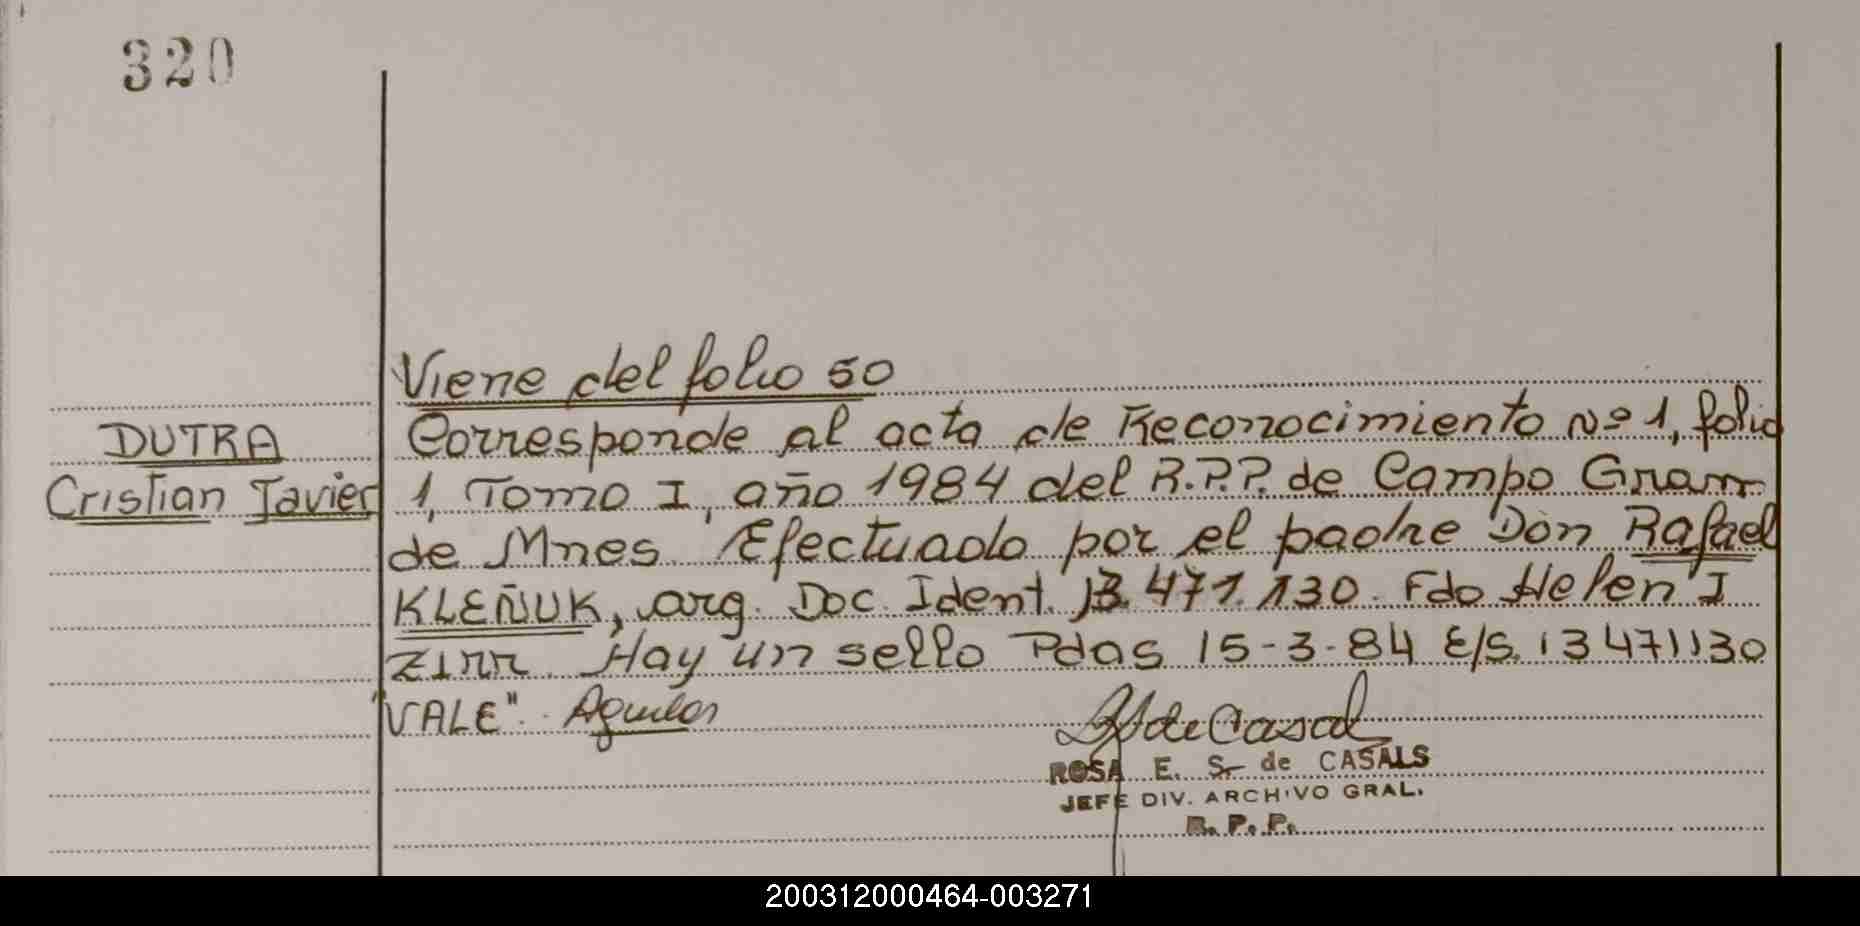 320
Viene del folio 50
DUTRA
Cristian Javier
Corresponde al acta de Reconocimiento Nº 1, folio
1, Tomo I, año 1984 del R.P.P. de Campo Gram
de Mnes. Efectuado por el padre Don Rafael
KLEÑUK, arg. Doc. Ident. 13.471.130. Fdo Helen I
ZIRR. Hay un sello Pdas 15-3-84 E/S. 13471130
"VALE". Aguilar
ROSA E. S. de CASALS
JEFE DIV. ARCHIVO GRAL.
R. P. P.
200312000464-003271